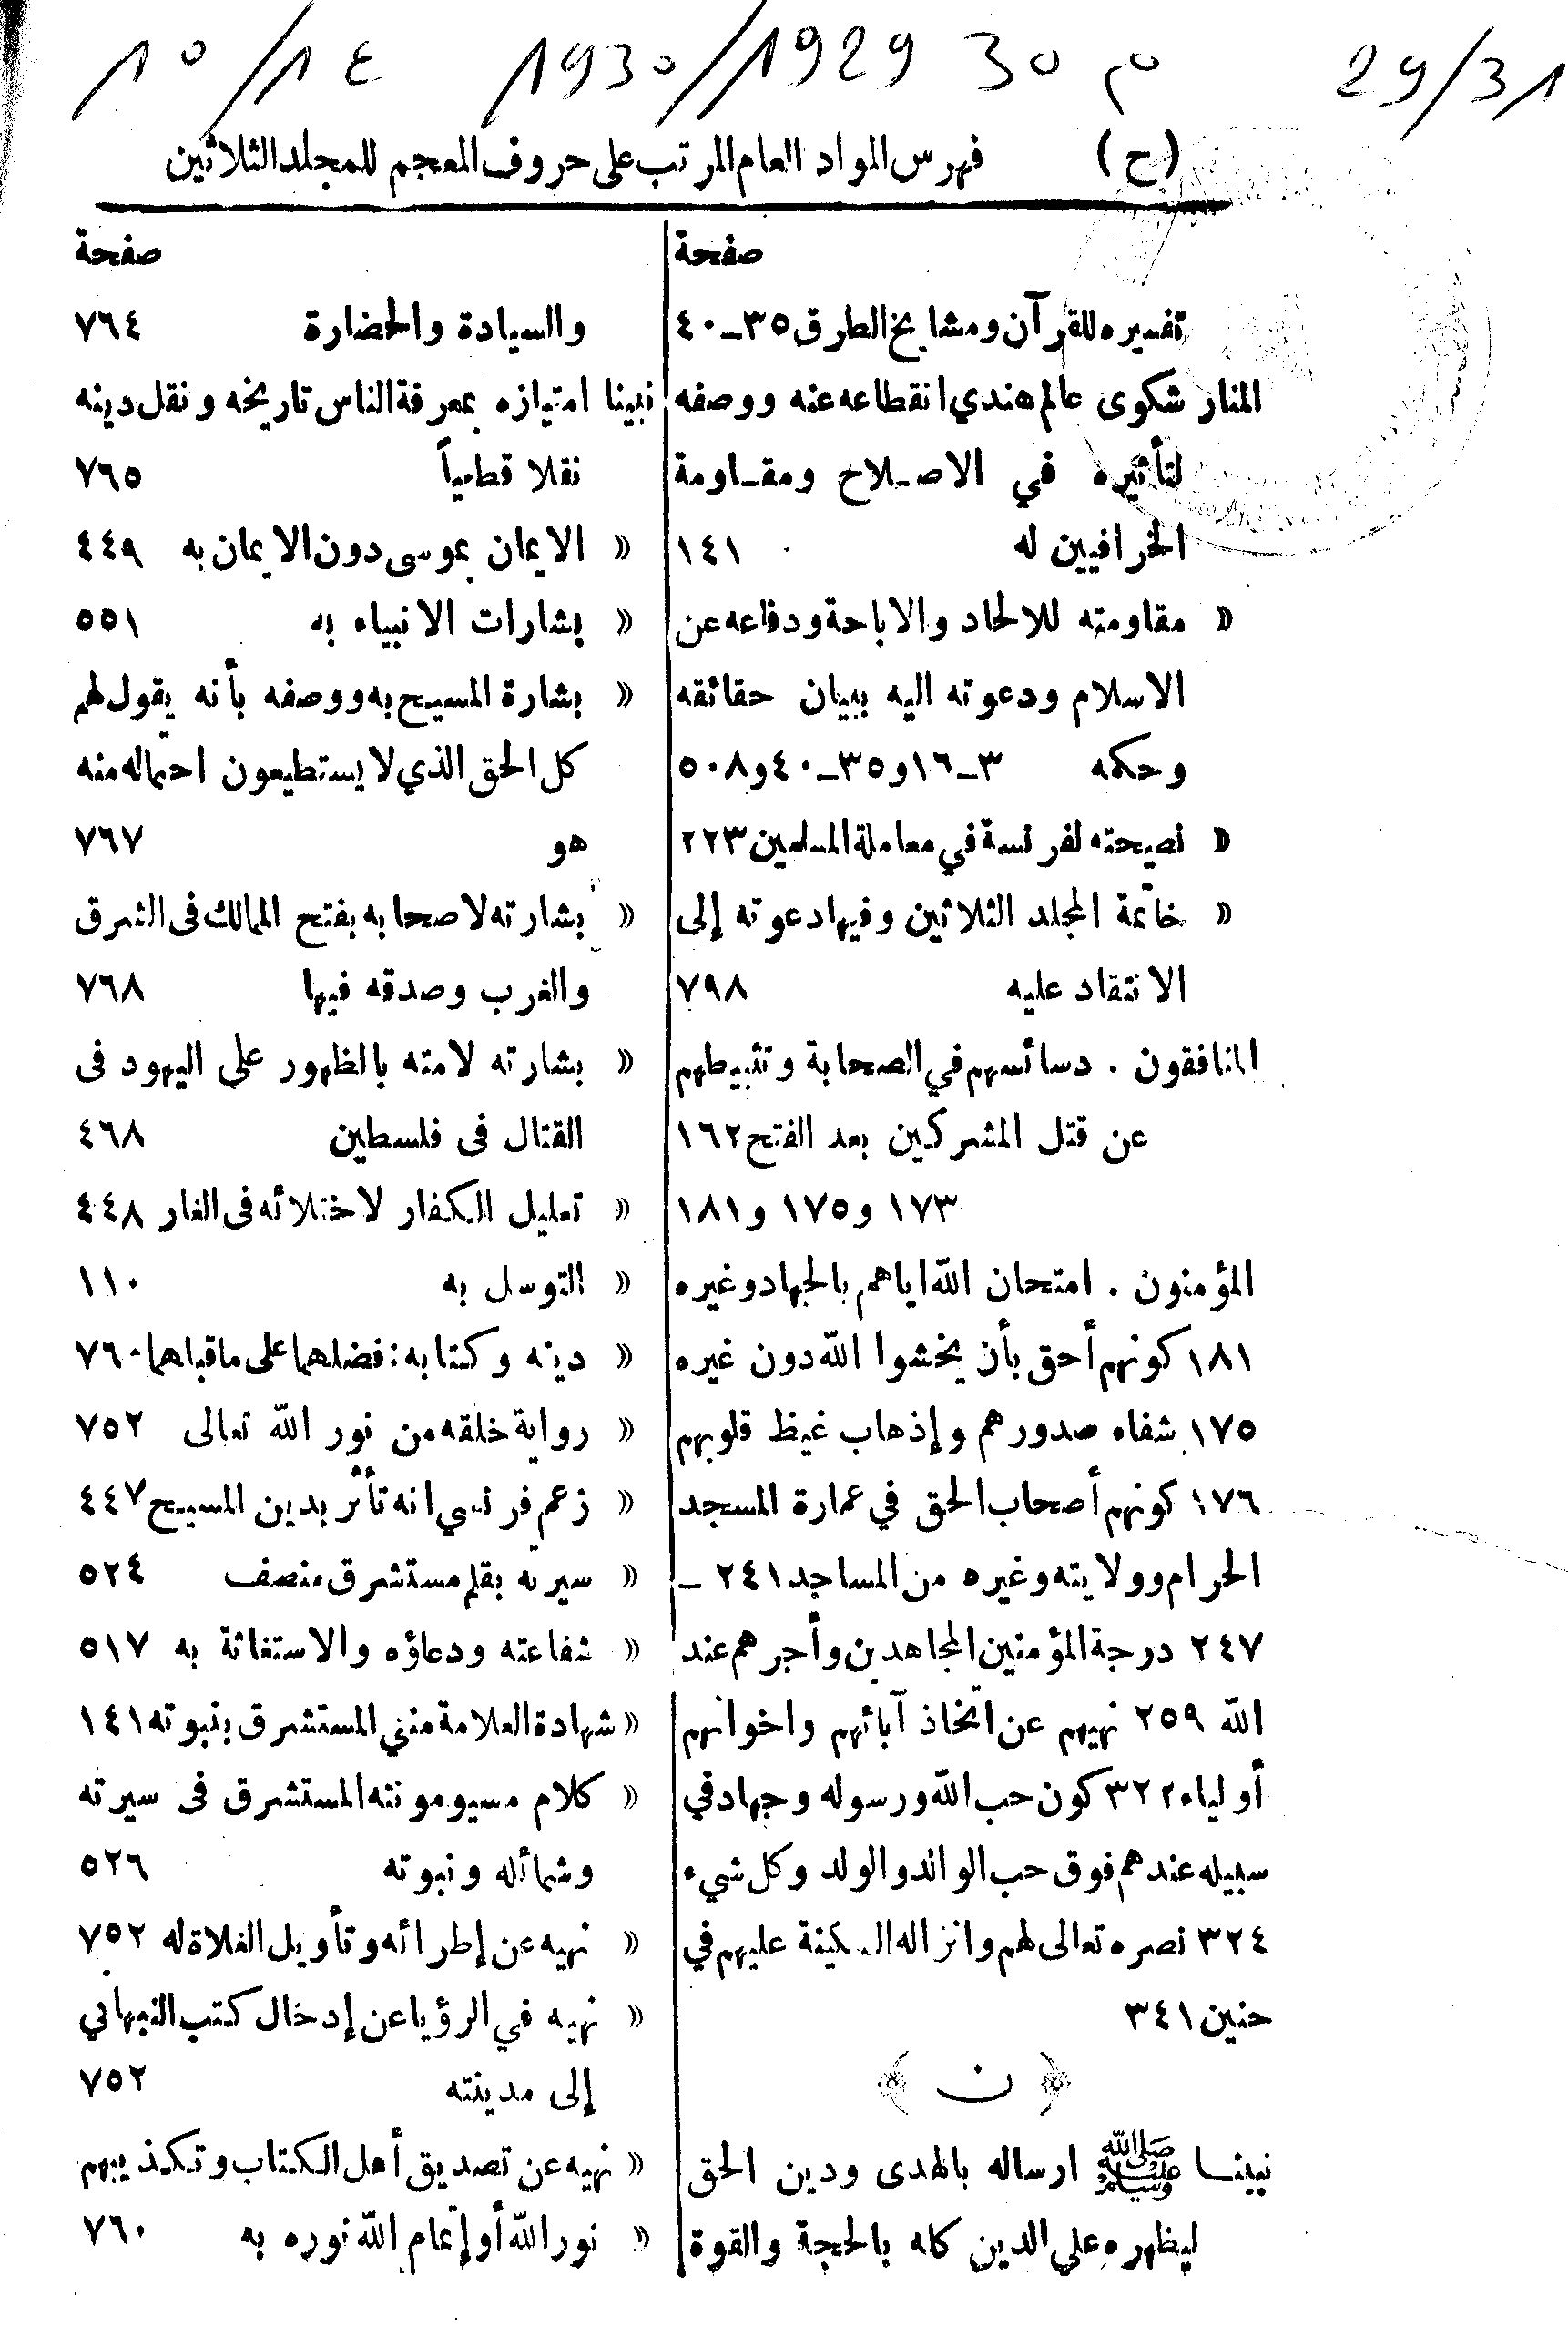 29/31 م 30 1929/1930 14/10
(ح) فهرس المواد العام المرتب على حروف المعجم للمجلد الثلاثين
صفحة
تفسيره للقرآن ومشايخ الطرق ٣٥ـ٤٠
المنار شكوى عالم هندي انقطاعه عنه ووصفه
لتأثيره في الاصلاح ومقاومة
الخرافيين له ١٤١
« مقاومته للالحاد والاباحة ودفاعه عن
الاسلام ودعوته اليه ببيان حقائقه
وحكمه ٣ـ١٦ و٣٥ـ٤٠ و٥٠٨
« نصيحته لفرنسة في معاملة المسلمين ٢٢٣
« خاتمة المجلد الثلاثين وفيها دعوته إلى
الانتقاد عليه ٧٩٨
المنافقون . دسائسهم في الصحابة وتثبيطهم
عن قتل المشركين بعد الفتح ١٦٢
١٧٣ و١٧٥ و١٨١
المؤمنون . امتحان الله اياهم بالجهاد وغيره
١٨١ كونهم أحق بأن يخشوا الله دون غيره
١٧٥ شفاء صدورهم وإذهاب غيظ قلوبهم
١٧٦ كونهم أصحاب الحق في عمارة المسجد
الحرام وولايته وغيره من المساجد ٢٤١ ـ
٢٤٧ درجة المؤمنين المجاهدين وأجرهم عند
الله ٢٥٩ نهيهم عن اتخاذ آبائهم واخوانهم
أولياء ٣٢٢ كون حب الله ورسوله وجهاد في
سبيله عندهم فوق حب الوالد والولد وكل شيء
٣٢٤ نصره تعالى لهم وانزاله السكينة عليهم في
حنين ٣٤١
﴿ ن ﴾
نبينا ﷺ ارساله بالهدى ودين الحق
ليظهره على الدين كله بالحجة والقوة
صفحة
والسيادة والحضارة ٧٦٤
نبينا امتيازه بمعرفة الناس تاريخه ونقل دينه
نقلا قطعياً ٧٦٥
« الايمان بموسى دون الايمان به ٤٤٩
« بشارات الانبياء به ٥٥١
« بشارة المسيح به ووصفه بأنه يقول لهم
كل الحق الذي لا يستطيعون احتماله منه
هو ٧٦٧
« بشارته لاصحابه بفتح الممالك فى الشرق
والغرب وصدقه فيها ٧٦٨
« بشارته لامته بالظهور على اليهود فى
القتال فى فلسطين ٤٦٨
« تعليل الكفار لاختلائه فى الغار ٤٤٨
« التوسل به ١١٠
« دينه وكتابه : فضلهما على ما قبلهما ٧٦٠
« رواية خلقه من نور الله تعالى ٧٥٢
« زعم فرنسي انه تأثر بدين المسيح ٤٤٧
« سيرته بقلم مستشرق منصف ٥٢٤
« شفاعته ودعاؤه والاستغاثة به ٥١٧
« شهادة العلامة متني المستشرق بنبوته ١٤١
« كلام مسيو مونته المستشرق فى سيرته
وشمائله ونبوته ٥٢٦
« نهيه عن إطرائه وتأويل الغلاة له ٧٥٢
« نهيه في الرؤيا عن إدخال كتب النبهاني
إلى مدينته ٧٥٢
« نهيه عن تصديق أهل الكتاب وتكذيبهم
« نور الله أو إتمام الله نوره به ٧٦٠